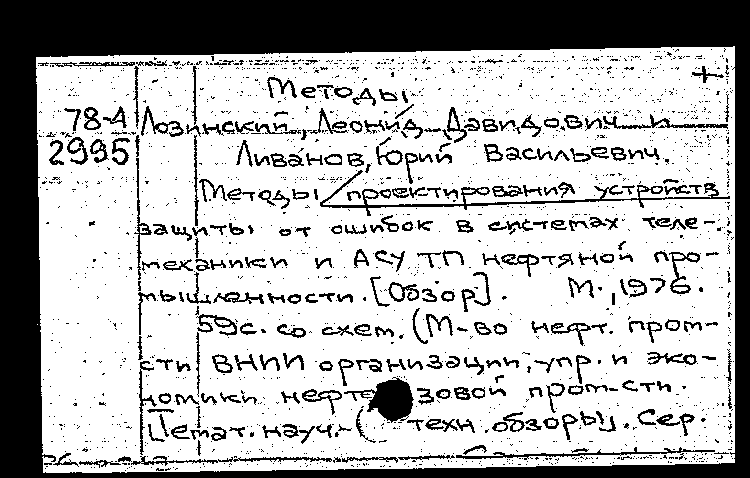 +
Методы
78-4 Лозинский, Леонид Давидович и
2995 Ливанов, Юрий Васильевич.
Методы проектирования устройств
защиты от ошибок в системах теле-
механики и АСУ ТП нефтяной про-
мышленности. [Обзор]. М., 1976.
59с. со схем. (М-во нефт. пром-
сти ВНИИ организации, упр. и эко-
номики нефте зовой пром-сти.
Темат. науч.- техн. обзоры). Сер.